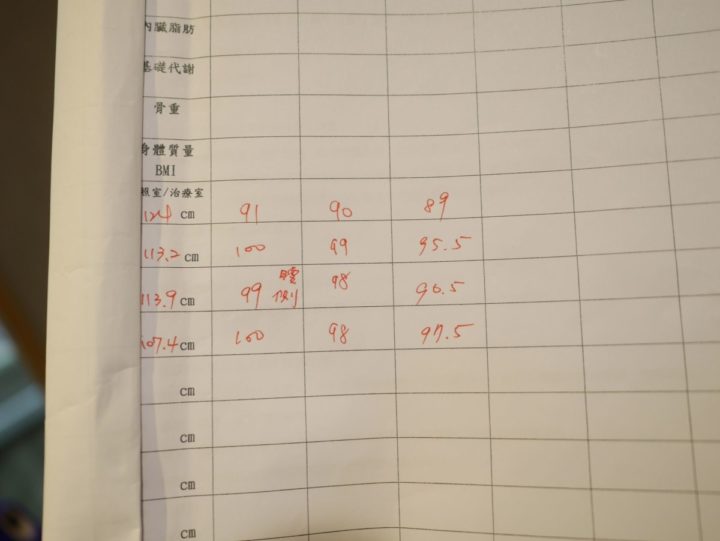 內臟脂肪
基礎代謝
骨重
身體質量
BMI
照室/治療室
124 cm 91 90 89
113.2 cm 100 99 95.5
113.9 cm 99 腰側 98 96.5
107.4 cm 100 98 97.5
cm
cm
cm
cm